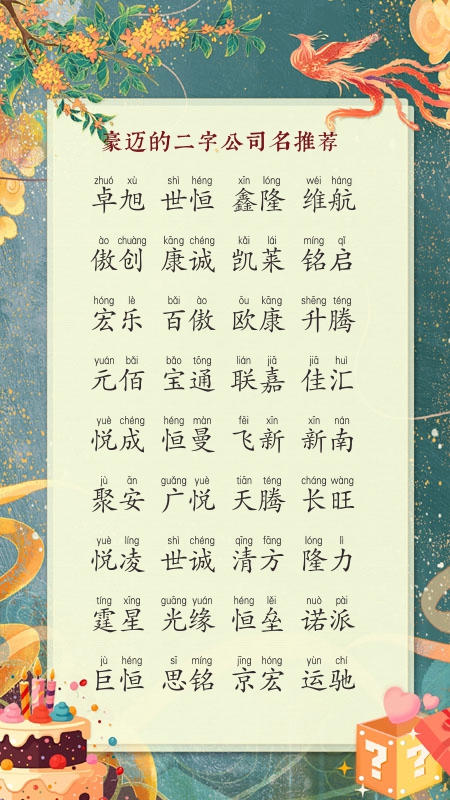 豪迈的二字公司名推荐
zhuó xù shì héng xīn lóng wéi háng
卓旭 世恒 鑫隆 维航
ào chuàng kāng chéng kǎi lái míng qǐ
傲创 康诚 凯莱 铭启
hóng lè bǎi ào ōu kāng shēng téng
宏乐 百傲 欧康 升腾
yuán bǎi bǎo tōng lián jiā jiā huì
元佰 宝通 联嘉 佳汇
yuè chéng héng màn fēi xīn xīn nán
悦成 恒曼 飞新 新南
jù ān guǎng yuè tiān téng cháng wàng
聚安 广悦 天腾 长旺
yuè líng shì chéng qīng fāng lóng lì
悦凌 世诚 清方 隆力
tíng xīng guāng yuán héng lěi nuò pài
霆星 光缘 恒垒 诺派
jù héng sī míng jīng hóng yùn chí
巨恒 思铭 京宏 运驰
? ?